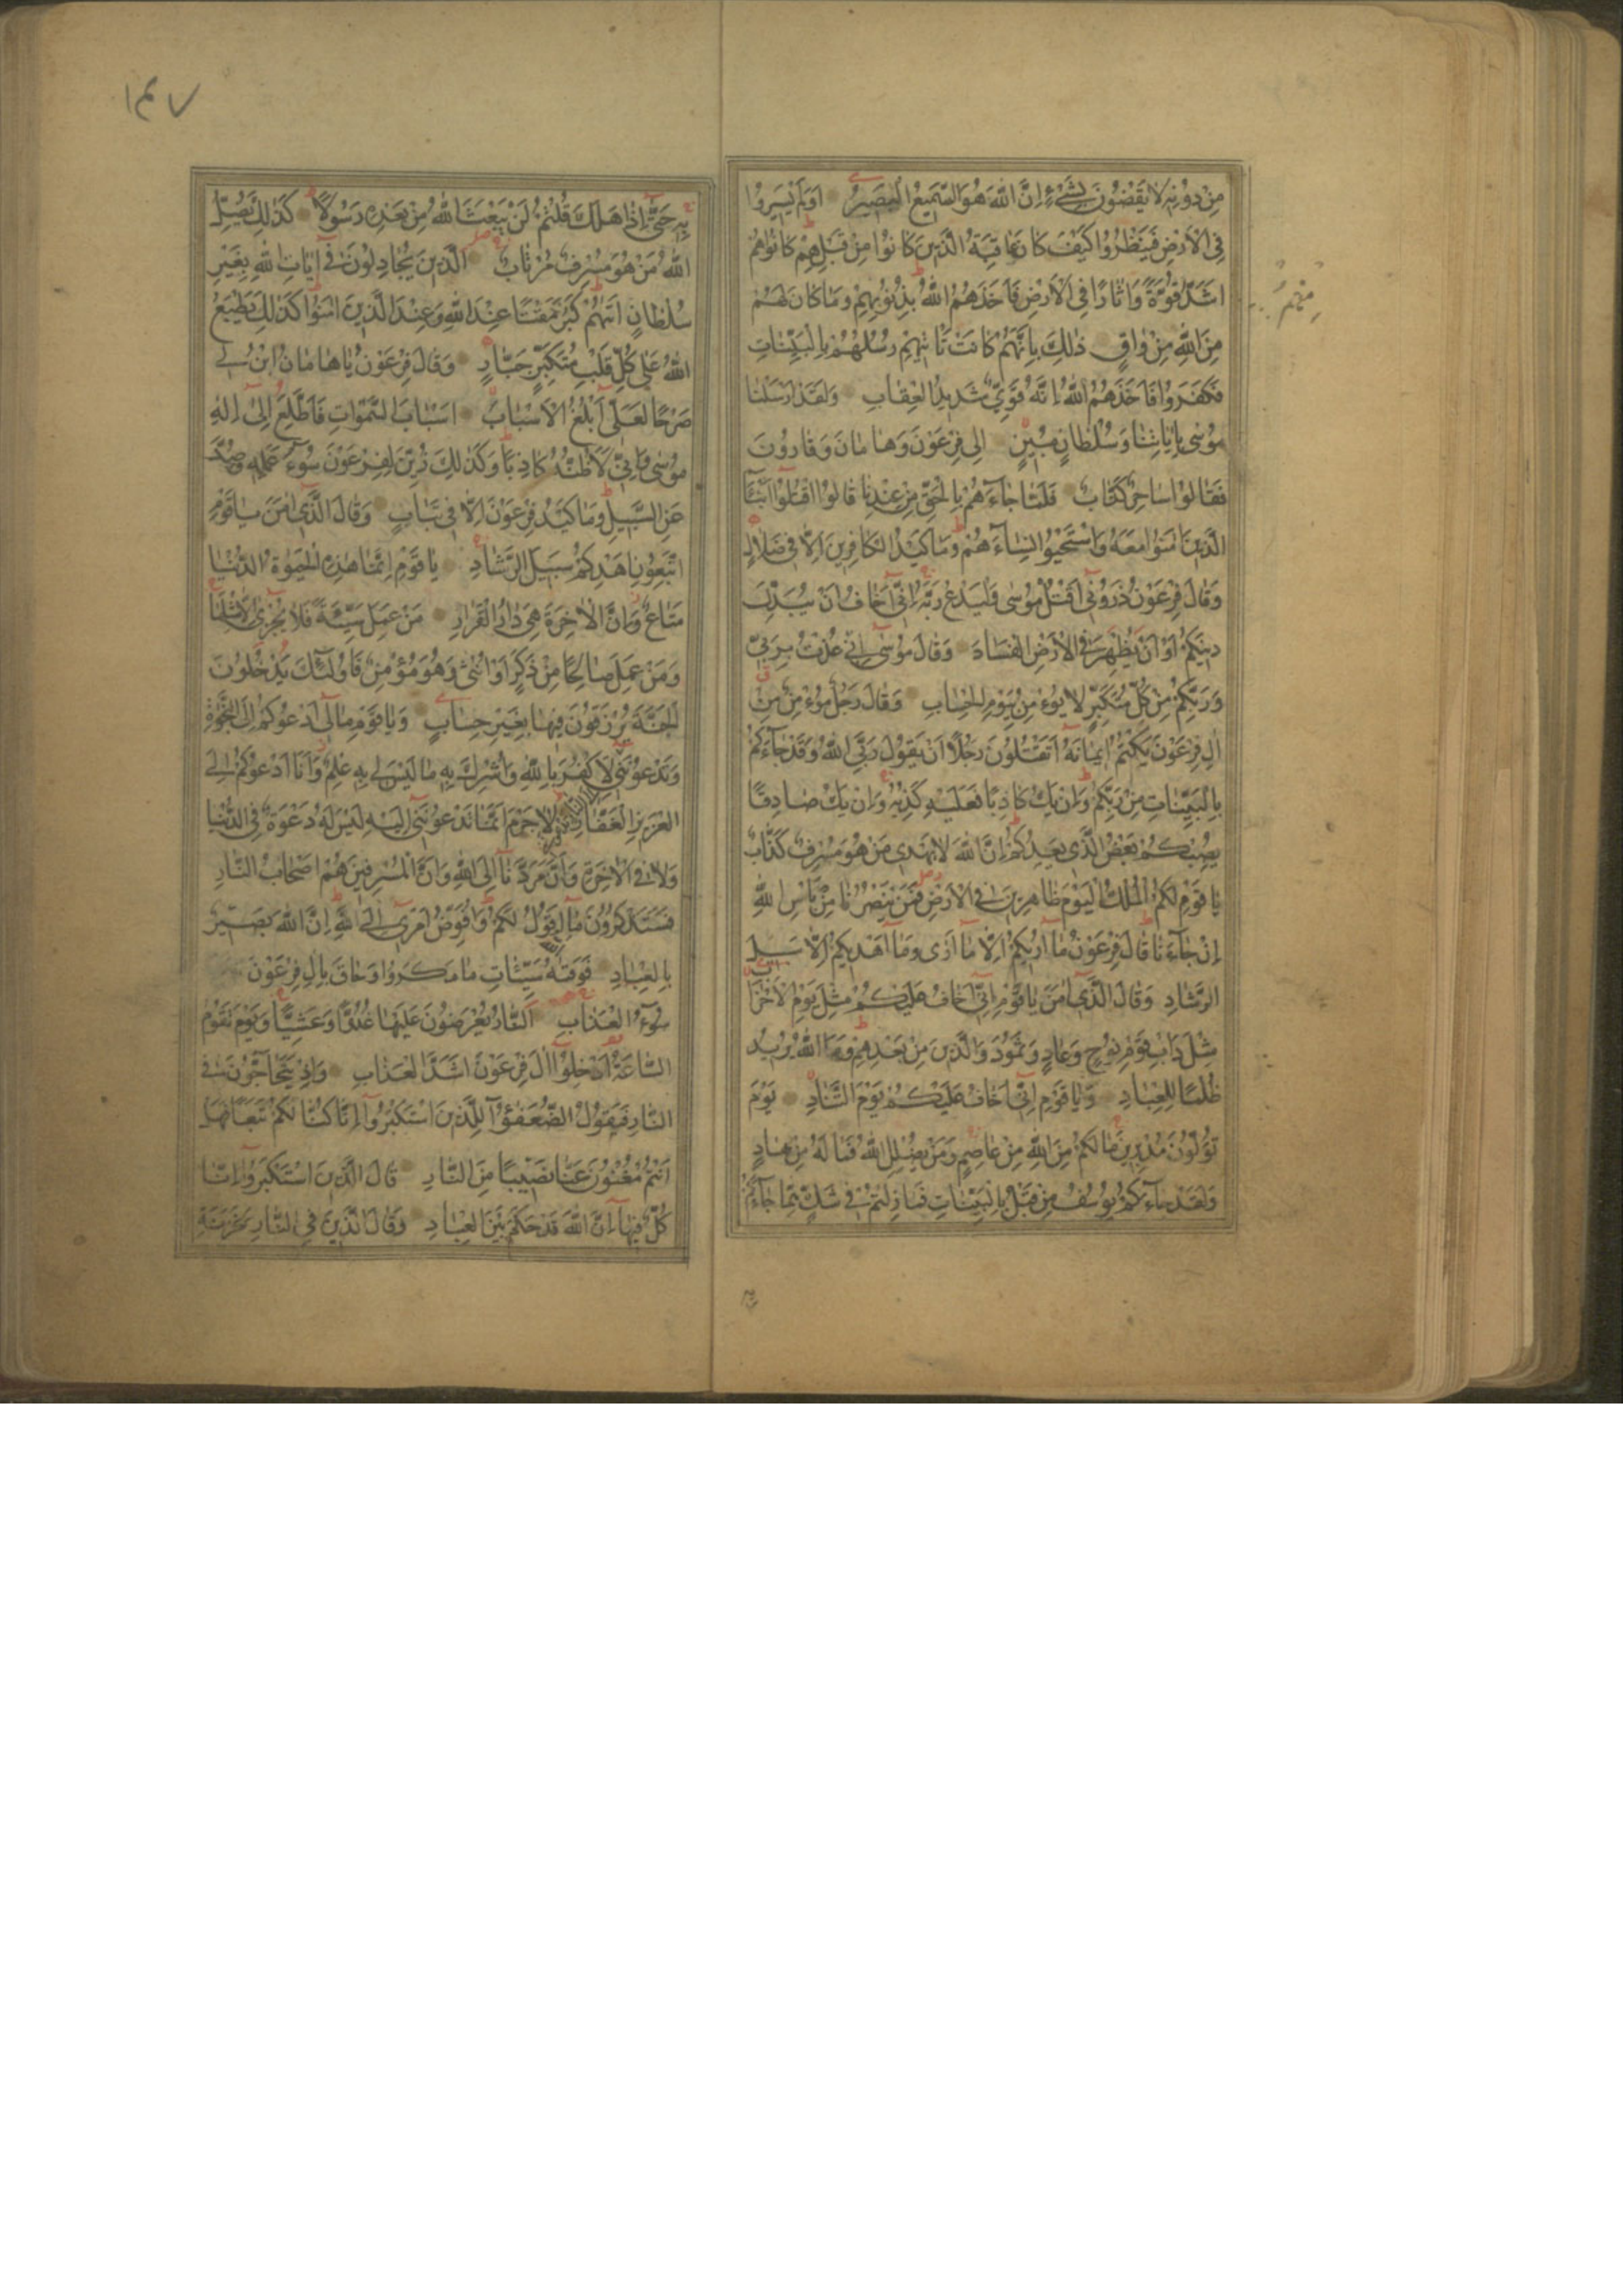 مِنْ دُونِهِ لَا يَقْضُونَ بِشَيْءٍ إِنَّ اللّٰهَ هُوَ السَّمِيعُ الْبَصِيرُ اَوَلَمْ يَسِيرُوا
فِي الْاَرْضِ فَيَنْظُرُوا كَيْفَ كَانَ عَاقِبَةُ الَّذِينَ كَانُوا مِنْ قَبْلِهِمْ كَانُوا هُمْ
اَشَدَّ قُوَّةً وَاٰثَارًا فِي الْاَرْضِ فَاَخَذَهُمُ اللّٰهُ بِذُنُوبِهِمْ وَمَا كَانَ لَهُمْ
مِنَ اللّٰهِ مِنْ وَاقٍ ذٰلِكَ بِاَنَّهُمْ كَانَتْ تَاْتِيهِمْ رُسُلُهُمْ بِالْبَيِّنَاتِ
فَكَفَرُوا فَاَخَذَهُمُ اللّٰهُ اِنَّهُ قَوِيٌّ شَدِيدُ الْعِقَابِ وَلَقَدْ اَرْسَلْنَا
مُوسٰى بِاٰيَاتِنَا وَسُلْطَانٍ مُبِينٍ اِلٰى فِرْعَوْنَ وَهَامَانَ وَقَارُونَ
فَقَالُوا سَاحِرٌ كَذَّابٌ فَلَمَّا جَاءَهُمْ بِالْحَقِّ مِنْ عِنْدِنَا قَالُوا اقْتُلُوا اَبْنَاءَ
الَّذِينَ اٰمَنُوا مَعَهُ وَاسْتَحْيُوا نِسَاءَهُمْ وَمَا كَيْدُ الْكَافِرِينَ اِلَّا فِي ضَلَالٍ
وَقَالَ فِرْعَوْنُ ذَرُونِي اَقْتُلْ مُوسٰى وَلْيَدْعُ رَبَّهُ اِنِّي اَخَافُ اَنْ يُبَدِّلَ
دِينَكُمْ اَوْ اَنْ يُظْهِرَ فِي الْاَرْضِ الْفَسَادَ وَقَالَ مُوسٰى اِنِّي عُذْتُ بِرَبِّي
وَرَبِّكُمْ مِنْ كُلِّ مُتَكَبِّرٍ لَا يُؤْمِنُ بِيَوْمِ الْحِسَابِ وَقَالَ رَجُلٌ مُؤْمِنٌ مِنْ
اٰلِ فِرْعَوْنَ يَكْتُمُ اِيمَانَهُ اَتَقْتُلُونَ رَجُلًا اَنْ يَقُولَ رَبِّيَ اللّٰهُ وَقَدْ جَاءَكُمْ
بِالْبَيِّنَاتِ مِنْ رَبِّكُمْ وَاِنْ يَكُ كَاذِبًا فَعَلَيْهِ كَذِبُهُ وَاِنْ يَكُ صَادِقًا
يُصِبْكُمْ بَعْضُ الَّذِي يَعِدُكُمْ اِنَّ اللّٰهَ لَا يَهْدِي مَنْ هُوَ مُسْرِفٌ كَذَّابٌ
يَا قَوْمِ لَكُمُ الْمُلْكُ الْيَوْمَ ظَاهِرِينَ فِي الْاَرْضِ فَمَنْ يَنْصُرُنَا مِنْ بَاْسِ اللّٰهِ
اِنْ جَاءَنَا قَالَ فِرْعَوْنُ مَا اُرِيكُمْ اِلَّا مَا اَرٰى وَمَا اَهْدِيكُمْ اِلَّا سَبِيلَ
الرَّشَادِ وَقَالَ الَّذِي اٰمَنَ يَا قَوْمِ اِنِّي اَخَافُ عَلَيْكُمْ مِثْلَ يَوْمِ الْاَحْزَابِ
مِثْلَ دَاْبِ قَوْمِ نُوحٍ وَعَادٍ وَثَمُودَ وَالَّذِينَ مِنْ بَعْدِهِمْ وَمَا اللّٰهُ يُرِيدُ
ظُلْمًا لِلْعِبَادِ وَيَا قَوْمِ اِنِّي اَخَافُ عَلَيْكُمْ يَوْمَ التَّنَادِ يَوْمَ
تُوَلُّونَ مُدْبِرِينَ مَا لَكُمْ مِنَ اللّٰهِ مِنْ عَاصِمٍ وَمَنْ يُضْلِلِ اللّٰهُ فَمَا لَهُ مِنْ هَادٍ
وَلَقَدْ جَاءَكُمْ يُوسُفُ مِنْ قَبْلُ بِالْبَيِّنَاتِ فَمَا زِلْتُمْ فِي شَكٍّ مِمَّا جَاءَكُمْ
١٤٧
بِهِ حَتّٰى اِذَا هَلَكَ قُلْتُمْ لَنْ يَبْعَثَ اللّٰهُ مِنْ بَعْدِهِ رَسُولًا كَذٰلِكَ يُضِلُّ
اللّٰهُ مَنْ هُوَ مُسْرِفٌ مُرْتَابٌ الَّذِينَ يُجَادِلُونَ فِي اٰيَاتِ اللّٰهِ بِغَيْرِ
سُلْطَانٍ اَتٰيهُمْ كَبُرَ مَقْتًا عِنْدَ اللّٰهِ وَعِنْدَ الَّذِينَ اٰمَنُوا كَذٰلِكَ يَطْبَعُ
اللّٰهُ عَلٰى كُلِّ قَلْبِ مُتَكَبِّرٍ جَبَّارٍ وَقَالَ فِرْعَوْنُ يَا هَامَانُ ابْنِ لِي
صَرْحًا لَعَلِّي اَبْلُغُ الْاَسْبَابَ اَسْبَابَ السَّمٰوَاتِ فَاَطَّلِعَ اِلٰى اِلٰهِ
مُوسٰى وَاِنِّي لَاَظُنُّهُ كَاذِبًا وَكَذٰلِكَ زُيِّنَ لِفِرْعَوْنَ سُوءُ عَمَلِهِ وَصُدَّ
عَنِ السَّبِيلِ وَمَا كَيْدُ فِرْعَوْنَ اِلَّا فِي تَبَابٍ وَقَالَ الَّذِي اٰمَنَ يَا قَوْمِ
اتَّبِعُونِ اَهْدِكُمْ سَبِيلَ الرَّشَادِ يَا قَوْمِ اِنَّمَا هٰذِهِ الْحَيٰوةُ الدُّنْيَا
مَتَاعٌ وَاِنَّ الْاٰخِرَةَ هِيَ دَارُ الْقَرَارِ مَنْ عَمِلَ سَيِّئَةً فَلَا يُجْزٰى اِلَّا مِثْلَهَا
وَمَنْ عَمِلَ صَالِحًا مِنْ ذَكَرٍ اَوْ اُنْثٰى وَهُوَ مُؤْمِنٌ فَاُولٰئِكَ يَدْخُلُونَ
الْجَنَّةَ يُرْزَقُونَ فِيهَا بِغَيْرِ حِسَابٍ وَيَا قَوْمِ مَا لِي اَدْعُوكُمْ اِلَى النَّجٰوةِ
وَتَدْعُونَنِي لِاَكْفُرَ بِاللّٰهِ وَاُشْرِكَ بِهِ مَا لَيْسَ لِي بِهِ عِلْمٌ وَاَنَا اَدْعُوكُمْ اِلَى
الْعَزِيزِ الْغَفَّارِ لَا جَرَمَ اَنَّمَا تَدْعُونَنِي اِلَيْهِ لَيْسَ لَهُ دَعْوَةٌ فِي الدُّنْيَا
وَلَا فِي الْاٰخِرَةِ وَاَنَّ مَرَدَّنَا اِلَى اللّٰهِ وَاَنَّ الْمُسْرِفِينَ هُمْ اَصْحَابُ النَّارِ
فَسَتَذْكُرُونَ مَا اَقُولُ لَكُمْ وَاُفَوِّضُ اَمْرِي اِلَى اللّٰهِ اِنَّ اللّٰهَ بَصِيرٌ
بِالْعِبَادِ فَوَقٰهُ سَيِّئَاتِ مَا مَكَرُوا وَحَاقَ بِاٰلِ فِرْعَوْنَ
سُوءُ الْعَذَابِ اَلنَّارُ يُعْرَضُونَ عَلَيْهَا غُدُوًّا وَعَشِيًّا وَيَوْمَ تَقُومُ
السَّاعَةُ اَدْخِلُوا اٰلَ فِرْعَوْنَ اَشَدَّ الْعَذَابِ وَاِذْ يَتَحَاجُّونَ فِي
النَّارِ فَيَقُولُ الضُّعَفٰؤُا لِلَّذِينَ اسْتَكْبَرُوا اِنَّا كُنَّا لَكُمْ تَبَعًا فَهَلْ
اَنْتُمْ مُغْنُونَ عَنَّا نَصِيبًا مِنَ النَّارِ قَالَ الَّذِينَ اسْتَكْبَرُوا اِنَّا
كُلٌّ فِيهَا اِنَّ اللّٰهَ قَدْ حَكَمَ بَيْنَ الْعِبَادِ وَقَالَ الَّذِينَ فِي النَّارِ لِخَزَنَةِ